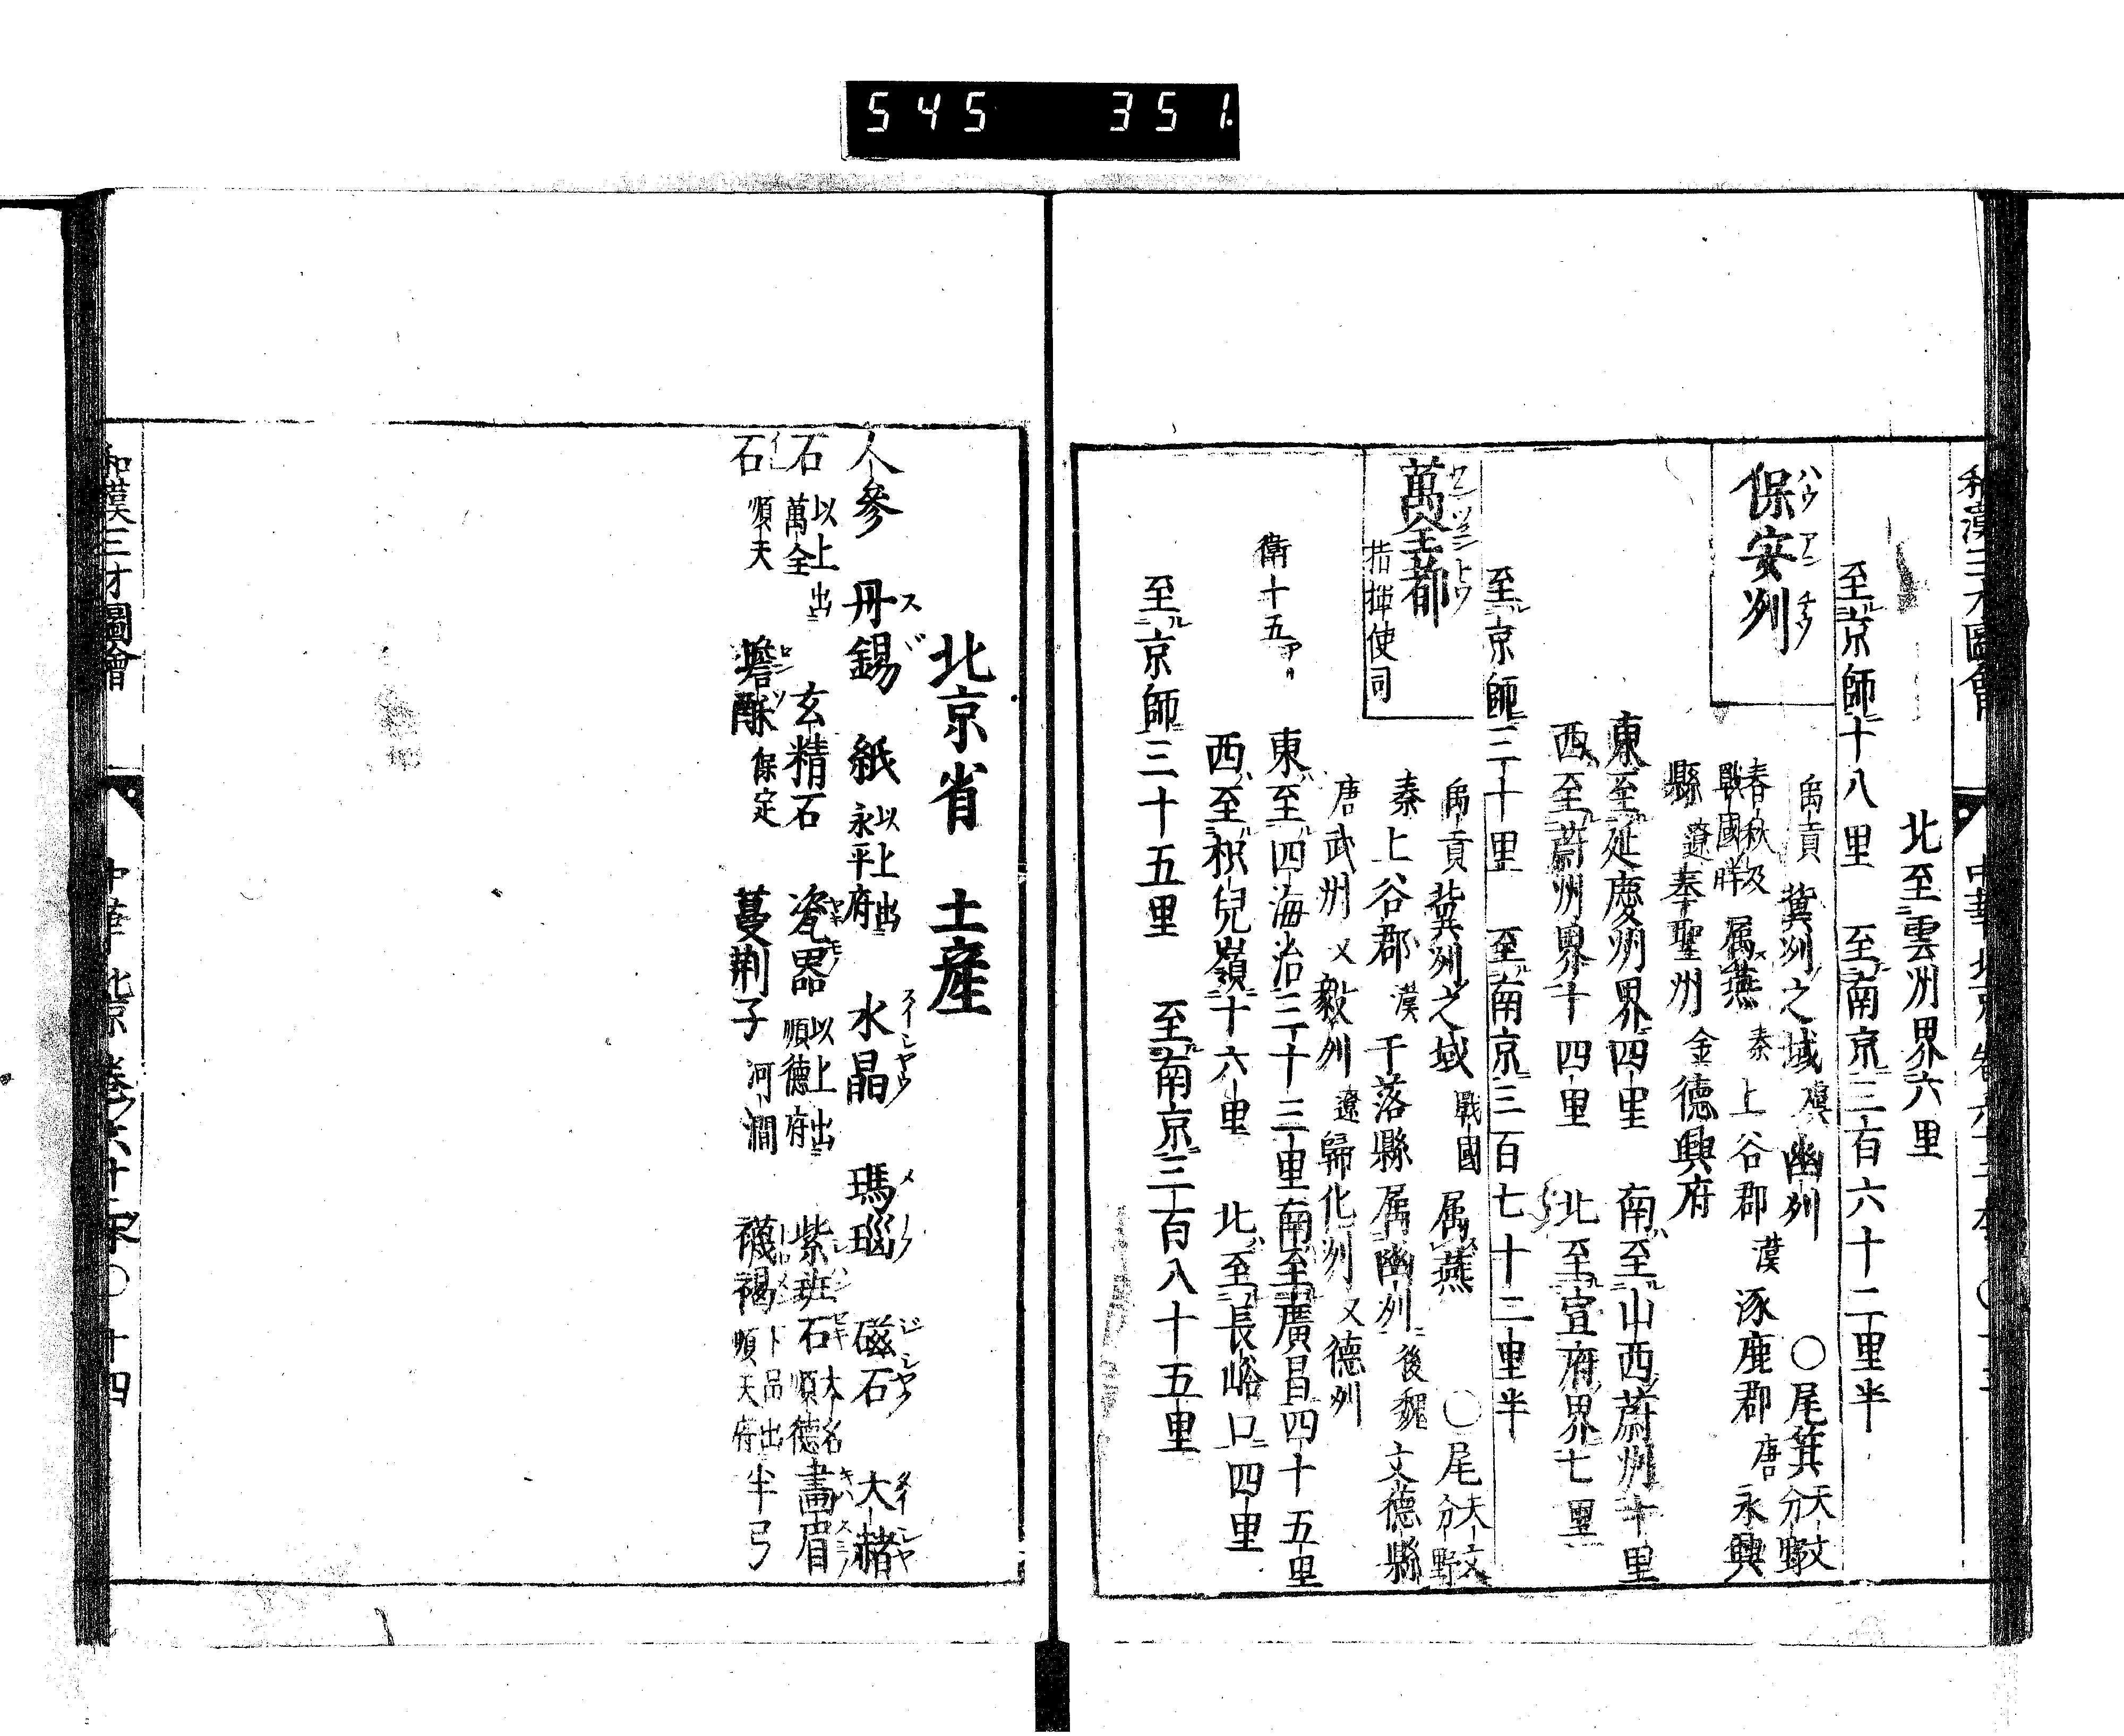 545 351
和漢三才圖會
北至雲州界六里
至京師十八里 至南京三百六十二里半
保安州 ハウ アン チウ
禹貢冀州之域 漢 幽州 ○尾箕 天文分野
春秋及戰國時 属燕 秦 上谷郡 漢 涿鹿郡 唐 永興
縣 遼 奉聖州 金 德興府
東至延慶州界四里 南至山西蔚州十里
西至蔚州界十四里 北至宣府界七里
至京師三十里 至南京三百七十二里半
萬全都 指揮使司
禹貢冀州之域 戰國 属燕 ○尾 天文分野
秦上谷郡 漢 于落縣属幽州 後魏 文德縣
唐武州 又 毅州 遼 歸化州 又德州
衛十五アリ 東至四海治三十三里 南至廣昌四十五里
西至枳兒嶺十六里 北至長峪口四里
至京師三十五里 至南京三百八十五里
北京省 土産
人參 丹錫 紙 以上出永平府 水晶 瑪瑙 磁石 大赭
石 以上出萬全 玄精石 瓷器 以上出順德府 紫班石 木名順德 畫眉
石 順天 蟾酥 保定 蔓荆子 河澗 襪褐 下品出順天府 半弓
和漢三才圖會 中華 北京 卷六十二本 ○十四